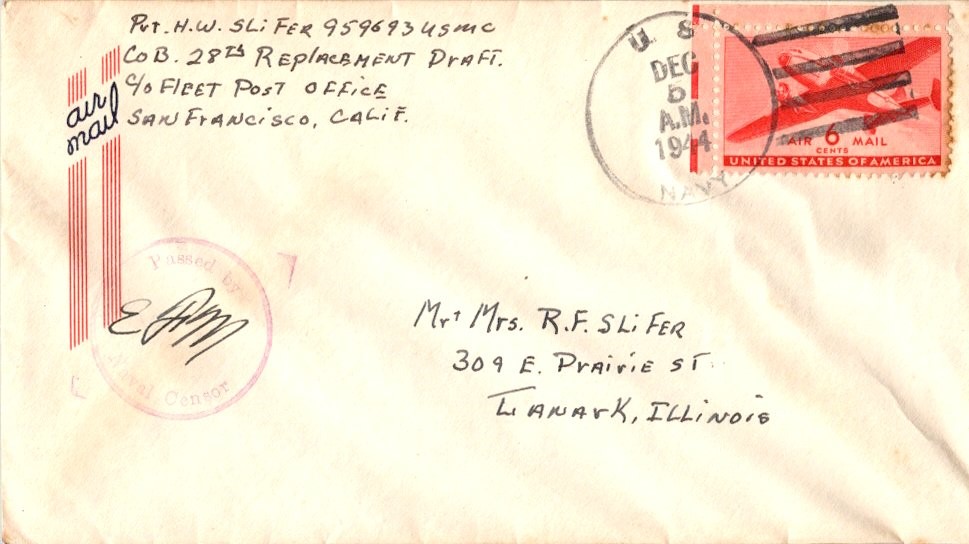 Pvt. H.W. SLiFER 959693 USMC
Co B. 28th REPLACEMENT DrAFT.
c/o FLEET POST OFFICE
SAN FrANCiSCO, CALiF.
air
mail
U. S.
DEC
5
A.M.
1944
NAVY
AIR 6 MAIL
CENTS
UNITED STATES OF AMERICA
Passed by
Naval Censor
Mr + Mrs. R.F. SLiFER
309 E. PrAirie ST.
LANArK, ILLiNOiS